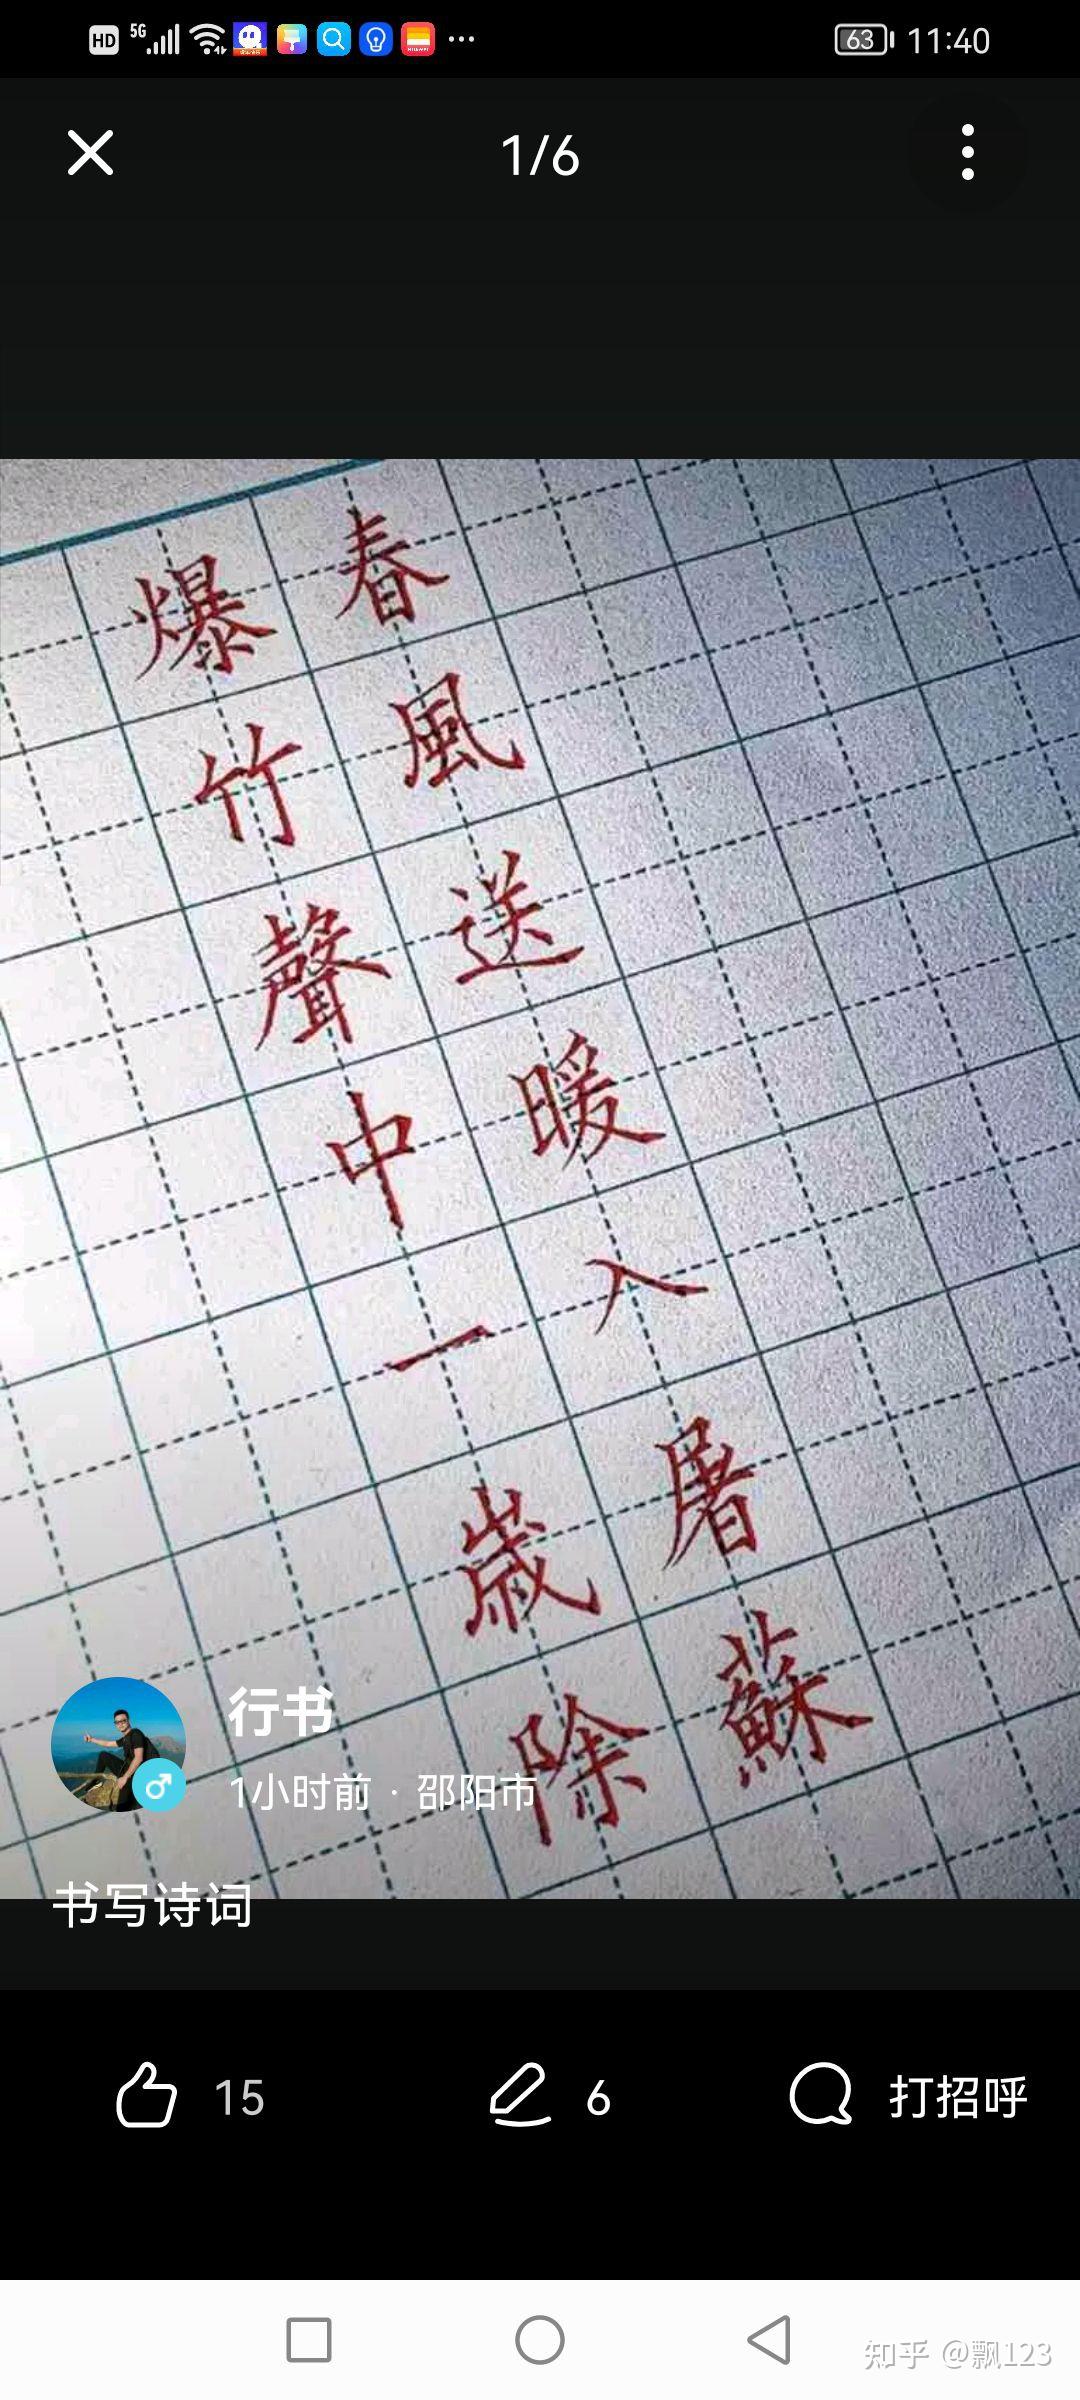 HD 5G 63 11:40
1/6
爆竹聲中一嵗除
春風送暖入屠蘇
行书
1小时前 · 邵阳市
书写诗词
15 6 打招呼
知乎 @飘123